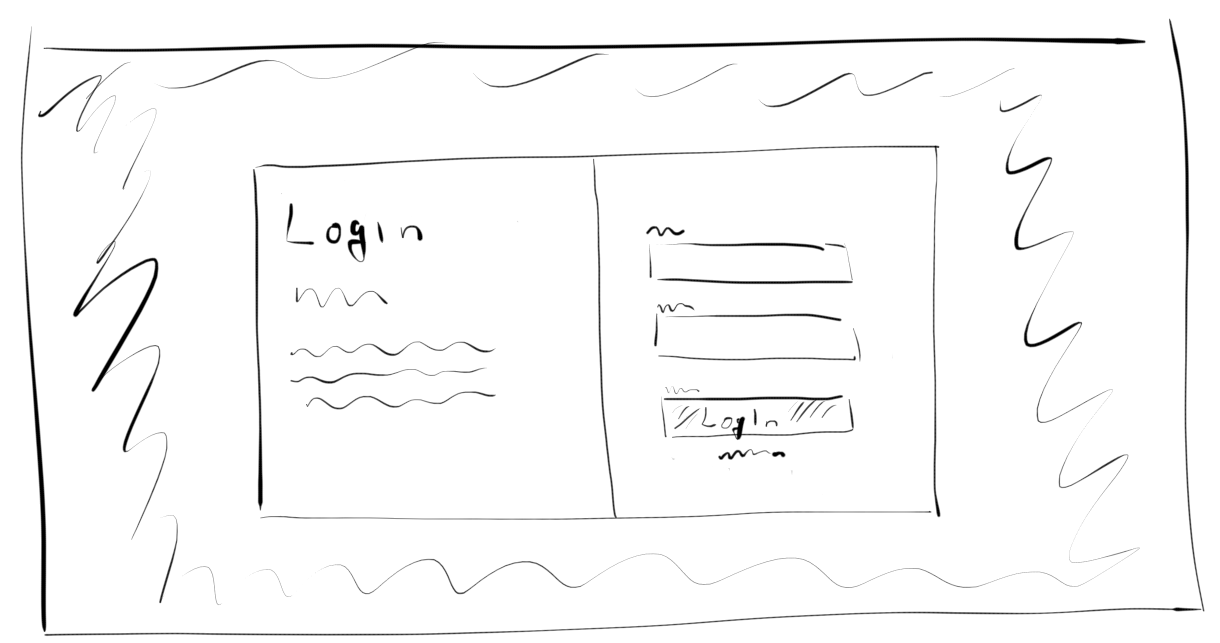 Login
Login